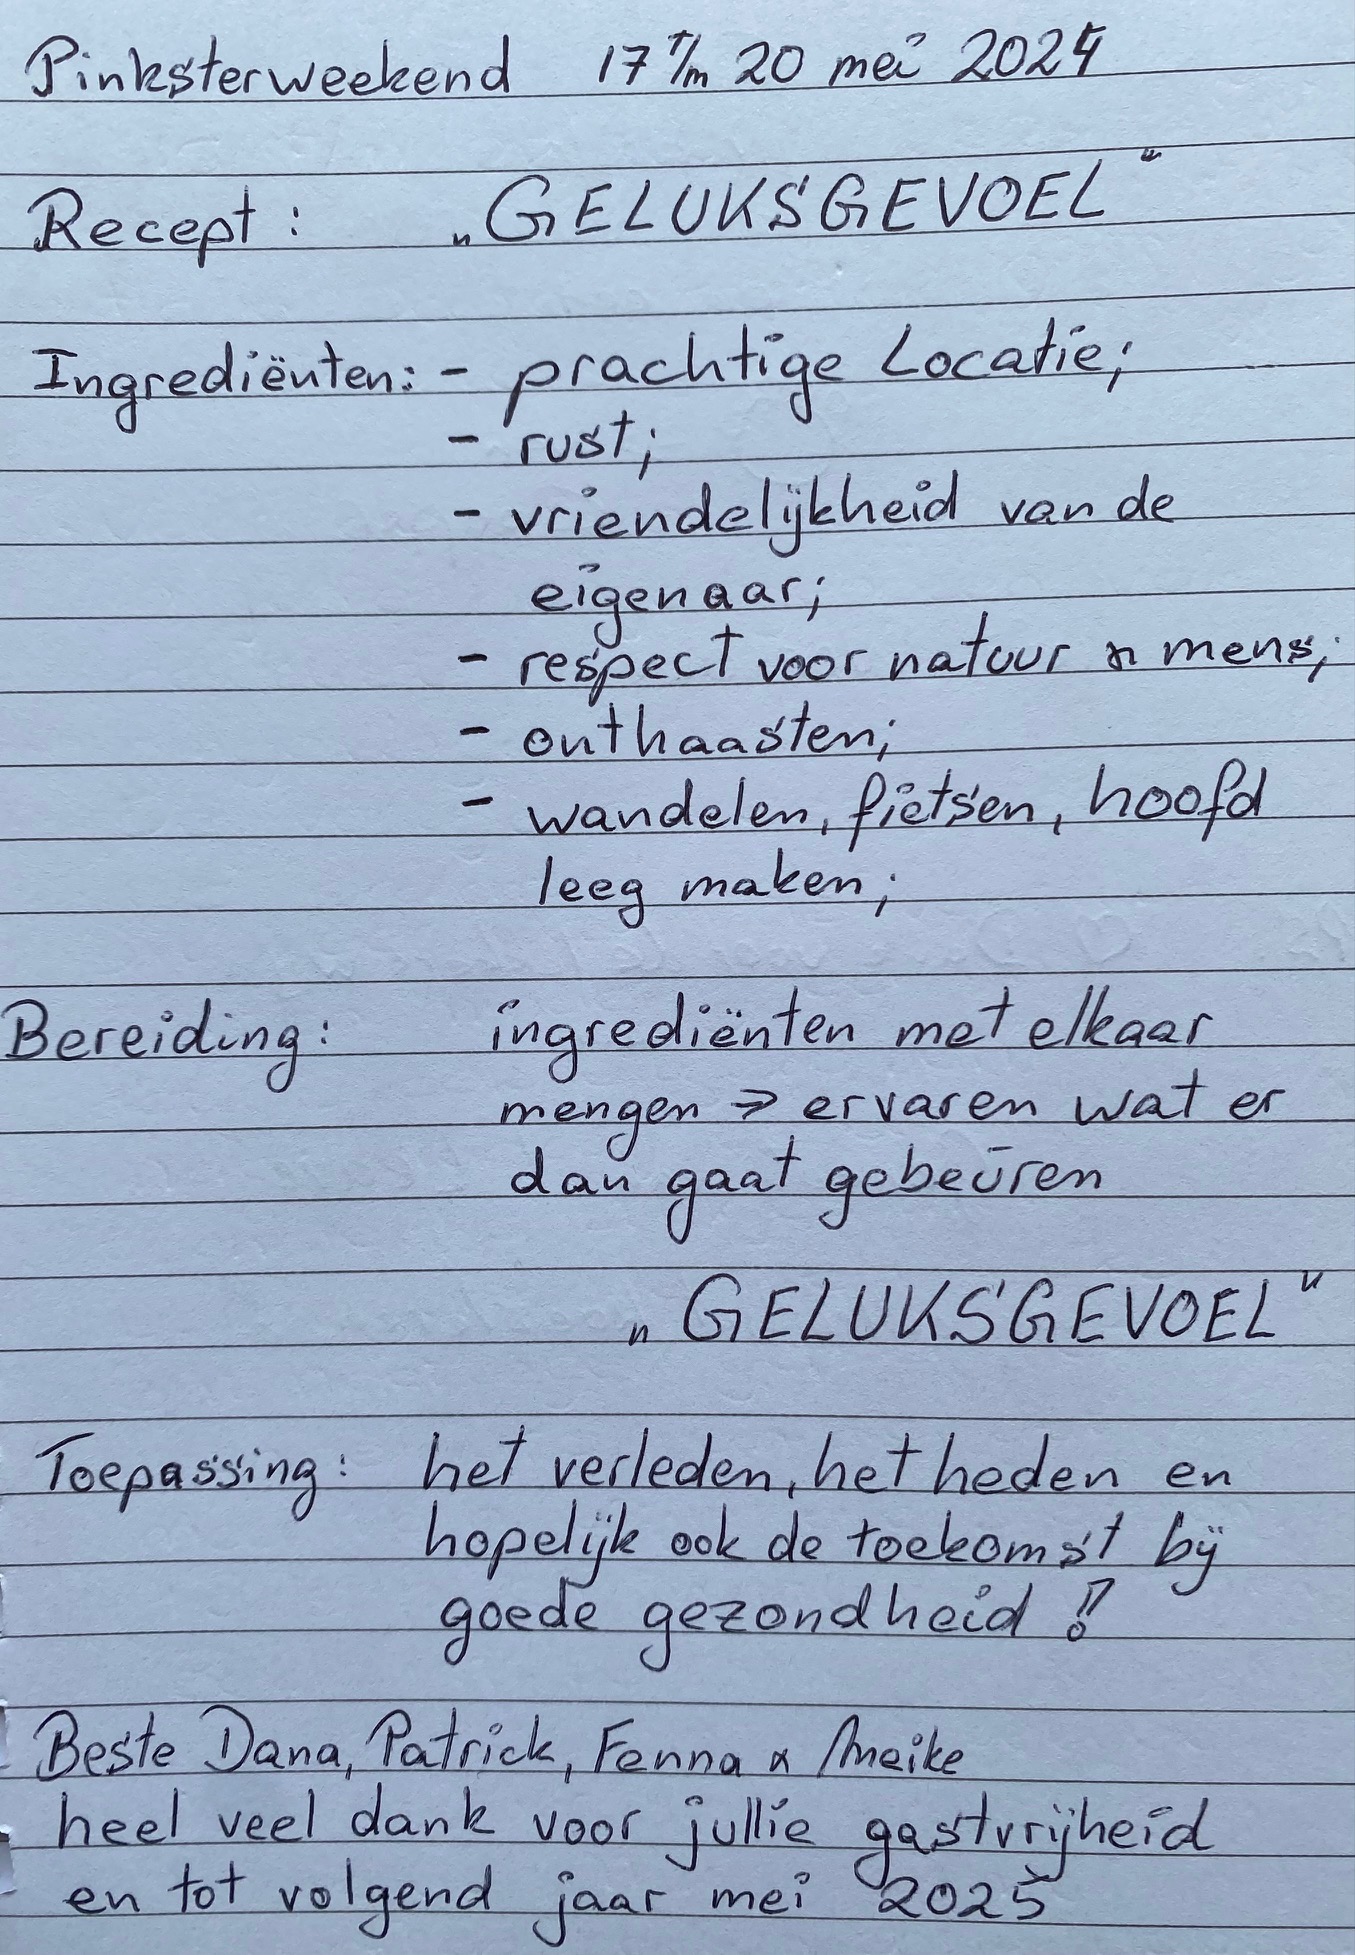 Pinksterweekend 17 t/m 20 mei 2024
Recept: „GELUKSGEVOEL"
Ingrediënten: - prachtige Locatie;
- rust;
- vriendelijkheid van de
eigenaar;
- respect voor natuur & mens;
- onthaasten;
- wandelen, fietsen, hoofd
leeg maken;
Bereiding: ingrediënten met elkaar
mengen → ervaren wat er
dan gaat gebeuren
„GELUKSGEVOEL"
Toepassing: het verleden, het heden en
hopelijk ook de toekomst bij
goede gezondheid !!
Beste Dana, Patrick, Fenna & Meike
heel veel dank voor jullie gastvrijheid
en tot volgend jaar mei 2025